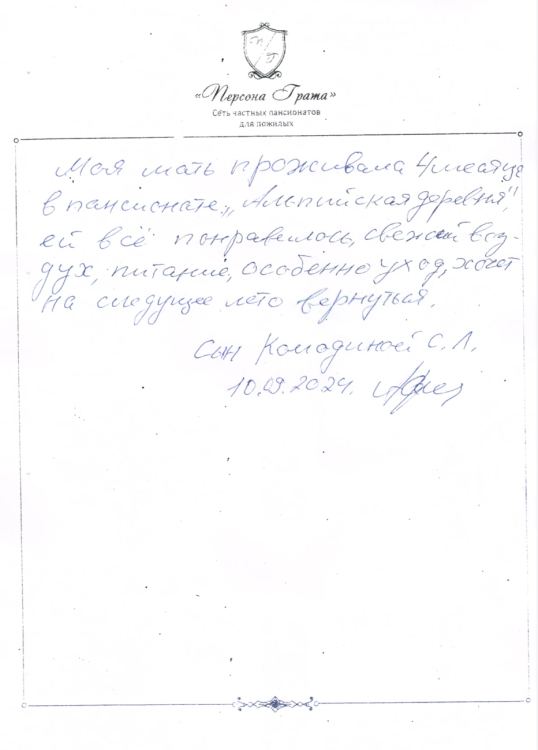 СП
Г
«Персона Грата»
Сеть частных пансионатов
для пожилых
Моя мать проживала 4 месяца
в пансионате „Альпийская деревня"
ей всё понравилось, свежий воз-
дух, питание, особенно уход, хочет
на следущее лето вернуться.
Сын Комодиной С. Л.
10.09.2024.